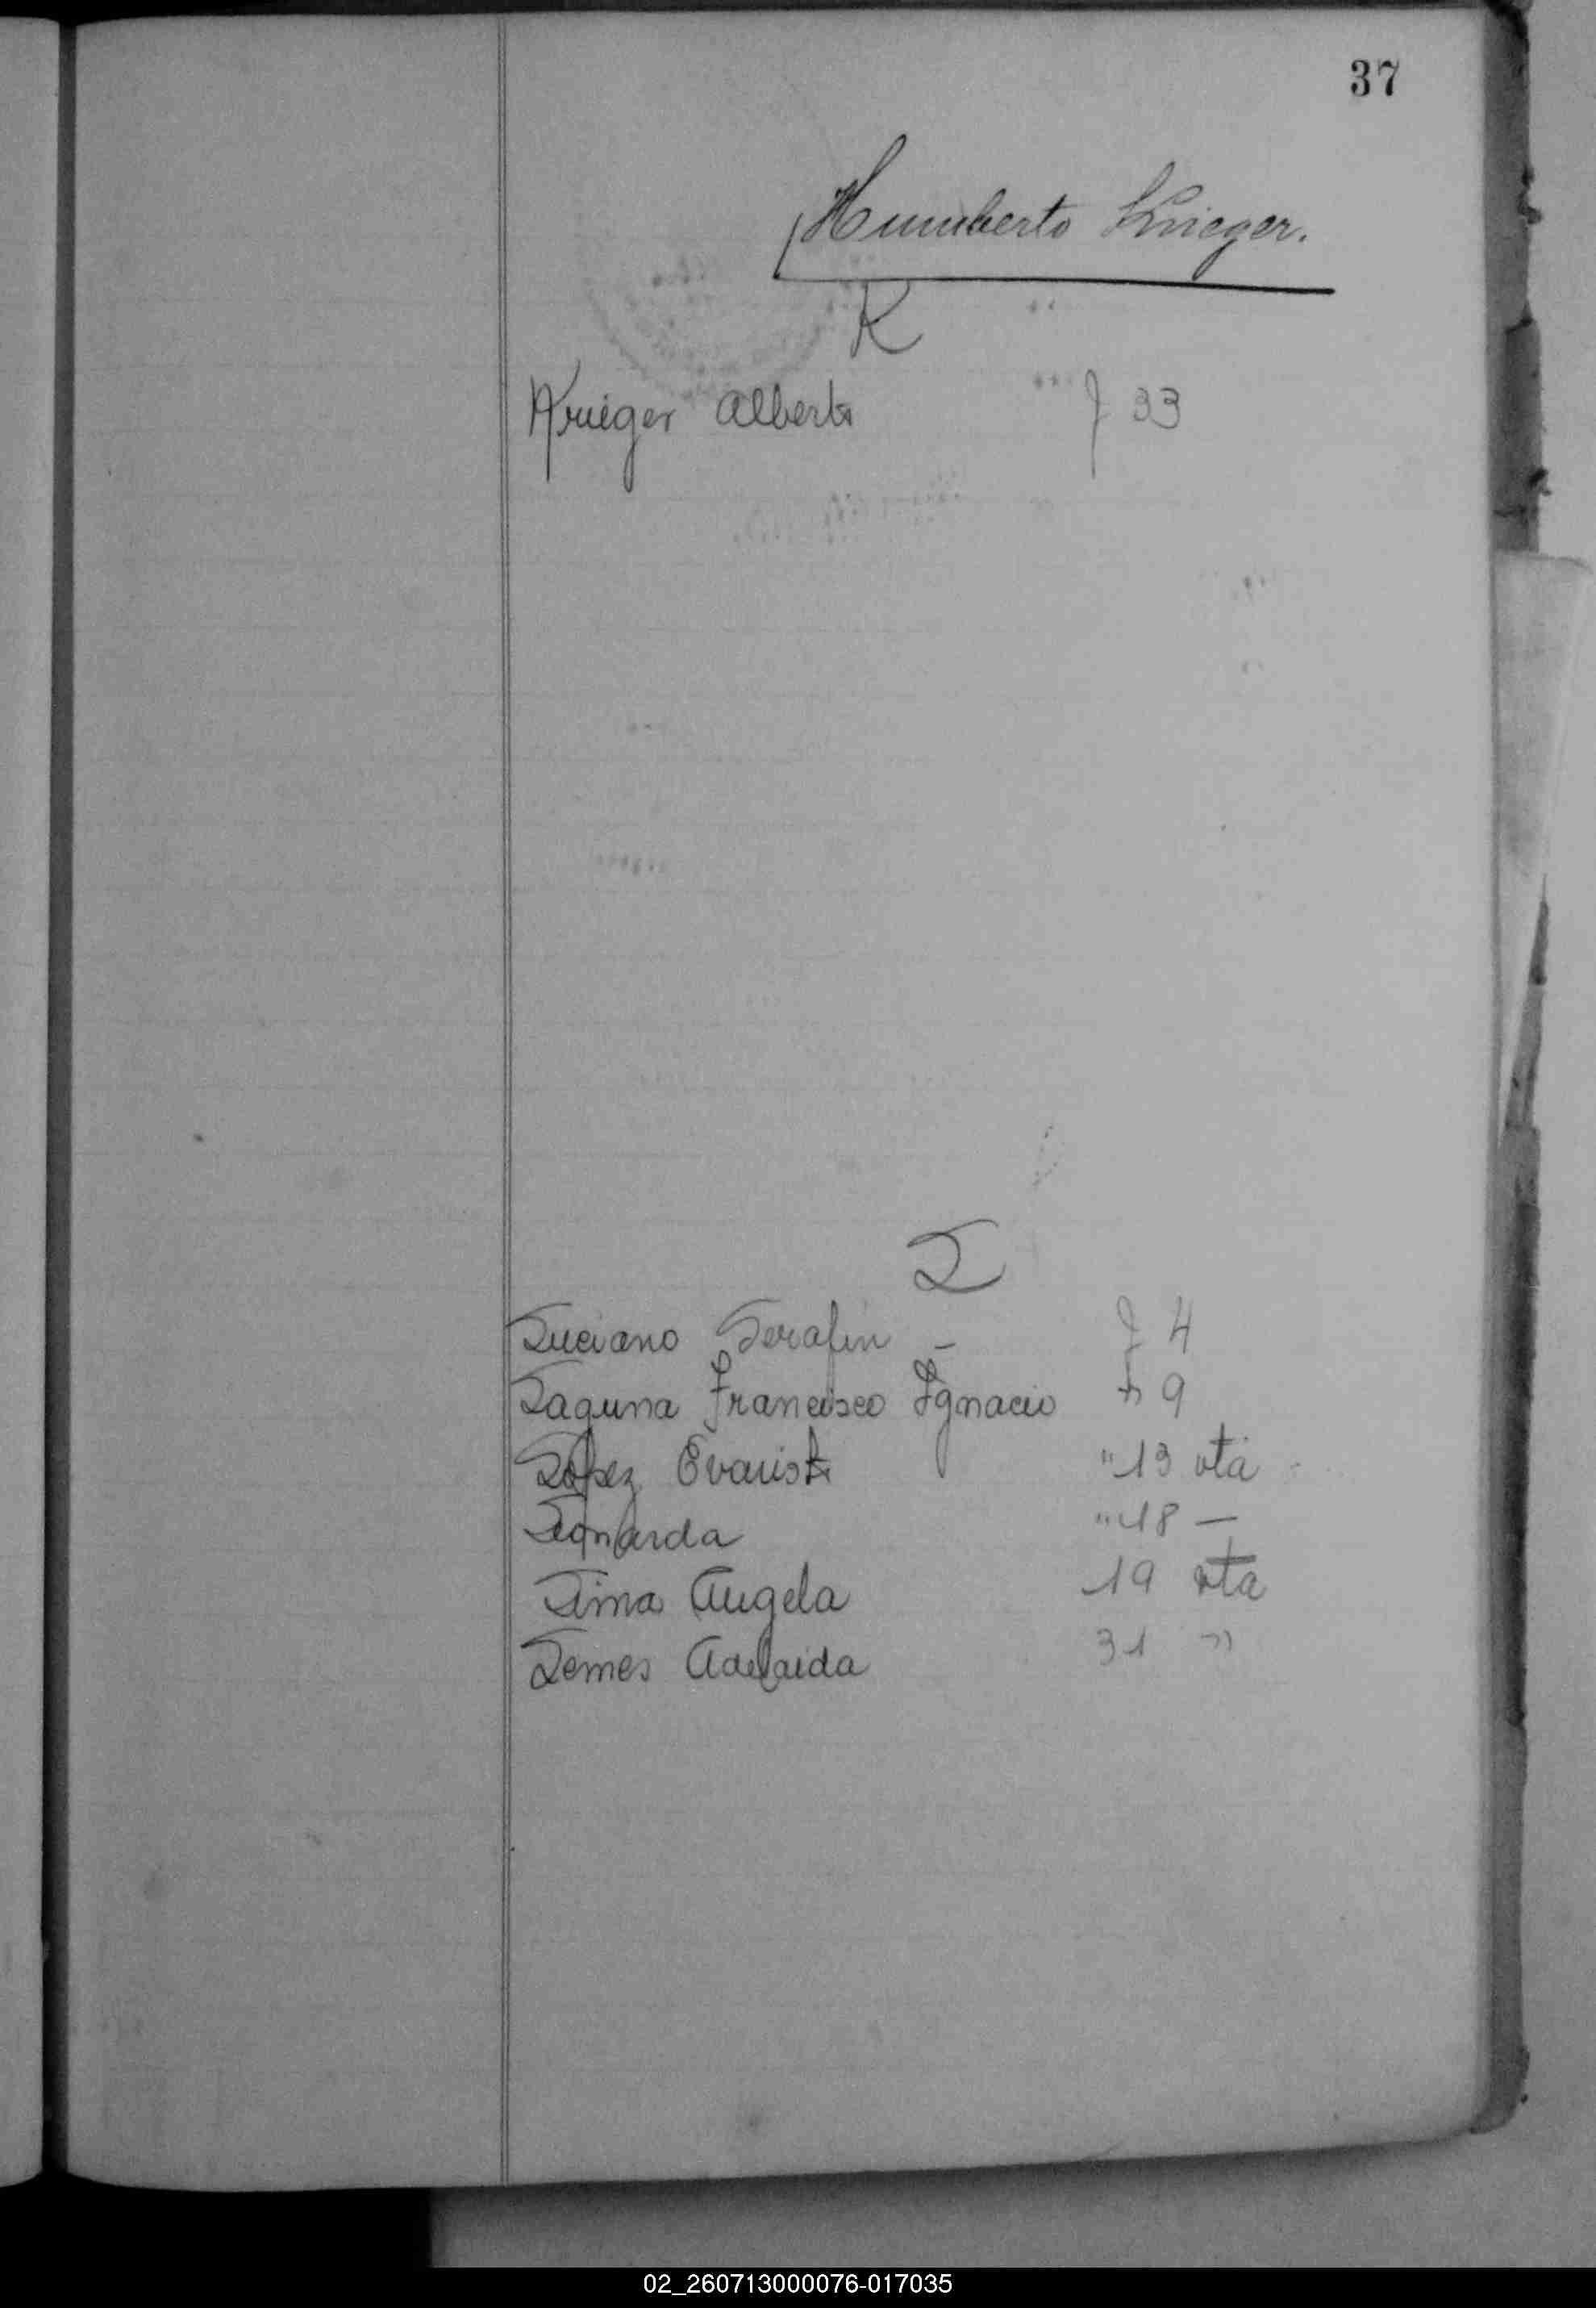 37
Humberto Krieger.
K
Krieger Alberto f 33
L
Luciano Serafin - f 4
Laguna Francisco Ignacio " 9
López Evaristo " 13 vta
Leonarda " 18 —
Lima Angela 19 vta
Lemes Adelaida 31 "
02_260713000076-017035